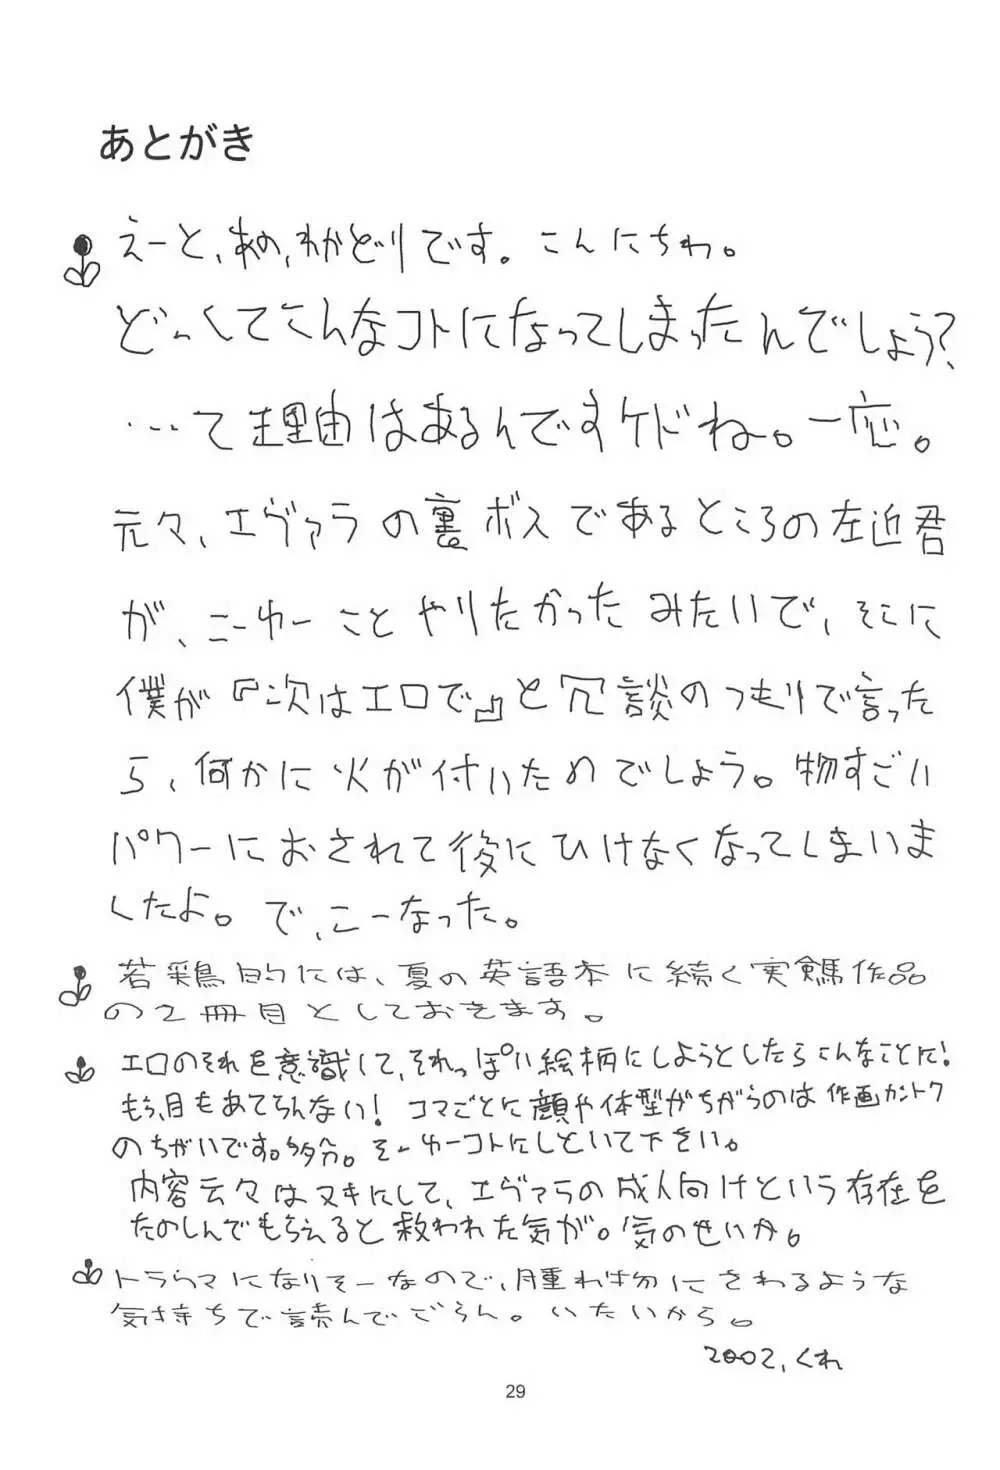 あとがき
えーと、あの、わかどりです。こんにちわ。
どーしてこんなコトになってしまったんでしょう?
…て理由はあるんですケドね。一応。
元々、エヴァラの裏ボスであるところの左近君
が、こーゆーことやりたかったみたいで、そこに
僕が『次はエロで』と冗談のつもりで言った
ら、何かに火が付いたのでしょう。物すごい
パワーにおされて後にひけなくなってしまいま
したよ。で、こーなった。
若鶏的には、夏の英語本に続く実験作品
の2冊目としておきます。
エロのそれを意識して、それっぽい絵柄にしようとしたらこんなことに!
もう、目もあてらんない! コマごとに顔や体型がちがうのは作画カントク
のちがいです。多分。そーゆーコトにしといて下さい。
内容云々はヌキにして、エヴァラの成人向けという存在を
たのしんでもらえると救われた気が。気のせいか。
トラウマになりそーなので、腫れ物にさわるような
気持ちで読んでごらん。いたいから。
2002、くれ
29